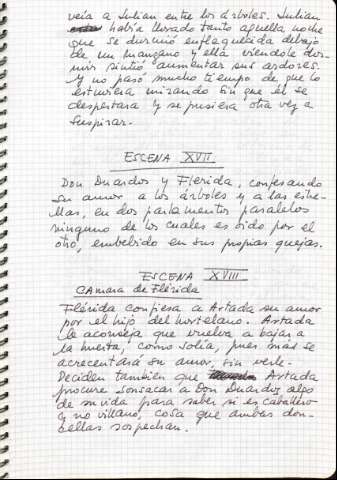 veía a Julian entre los árboles. Julian
había llorado tanto aquella noche
que se durmió enflaquecida debajo
de un manzano y ella viendole dor-
mir sintió aumentar sus ardores.
Y no pasó mucho tiempo de que lo
estuviera mirando sin que él se
despertara y se pusiera otra vez a
suspirar.
ESCENA XVII
Don Duardos y Flerida, confesando
su amor a los árboles y a las estre-
llas, en dos parlamentos paralelos
ninguno de los cuales es oido por el
otro, embebido en sus propias quejas.
ESCENA XVIII
CAmara de Flérida
Flérida confiesa a Artada su amor
por el hijo del hortelano. Artada
le aconseja que vuelva a bajar a
la huerta, como solía, pues más se
acrecentará su amor sin verle.
Deciden también que Artada
procure sonsacar a Don Duardos algo
de su vida para saber si es caballero
y no villano, cosa que ambas don-
cellas sospechan.